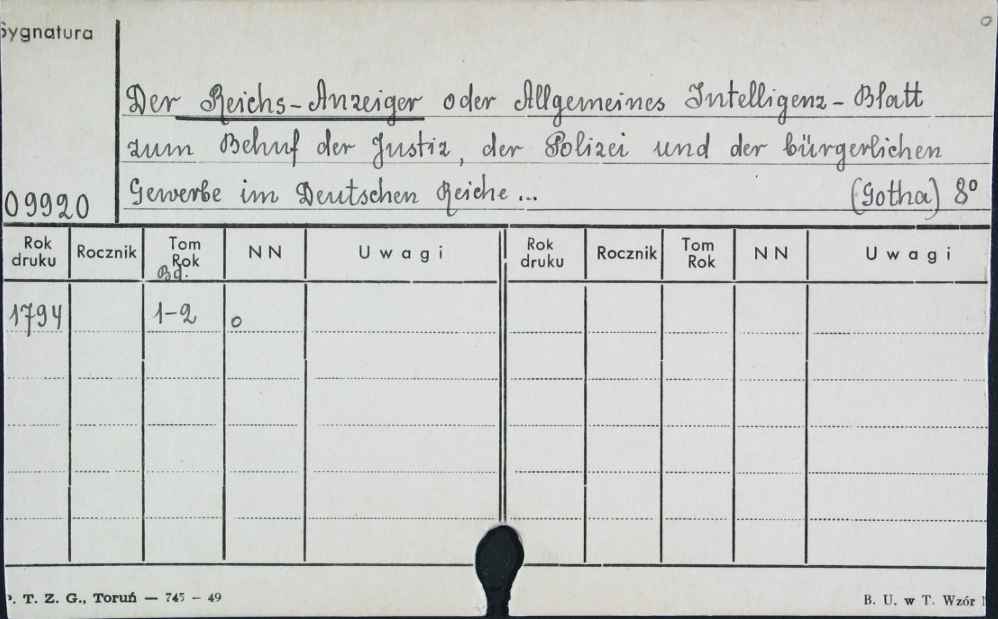 Sygnatura
Der Reichs-Anzeiger oder Allgemeines Intelligenz-Blatt
zum Behuf der Justiz, der Polizei und der bürgerlichen
Gewerbe im Deutschen Reiche... (Gotha) 8°
09920
Rok druku Rocznik Tom Rok Bd. NN Uwagi Rok druku Rocznik Tom Rok NN Uwagi
1794 1-2 o
P. T. Z. G., Toruń — 745 - 49 B. U. w T. Wzór